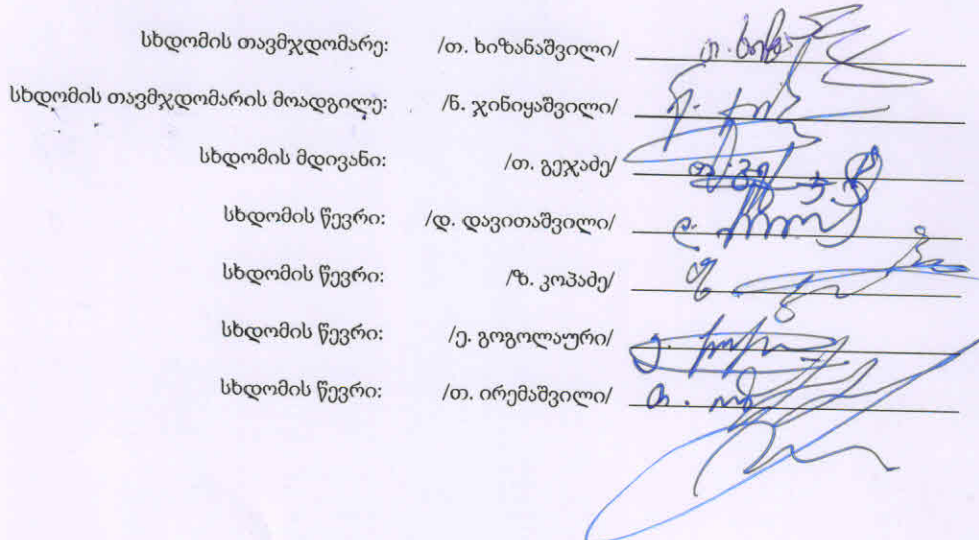 სხდომის თავმჯდომარე: /თ. ხიზანაშვილი/
სხდომის თავმჯდომარის მოადგილე: /ნ. ჯინიყაშვილი/
სხდომის მდივანი: /თ. გეჯაძე/
სხდომის წევრი: /დ. დავითაშვილი/
სხდომის წევრი: /ზ. კოპაძე/
სხდომის წევრი: /ე. გოგოლაური/
სხდომის წევრი: /თ. ირემაშვილი/